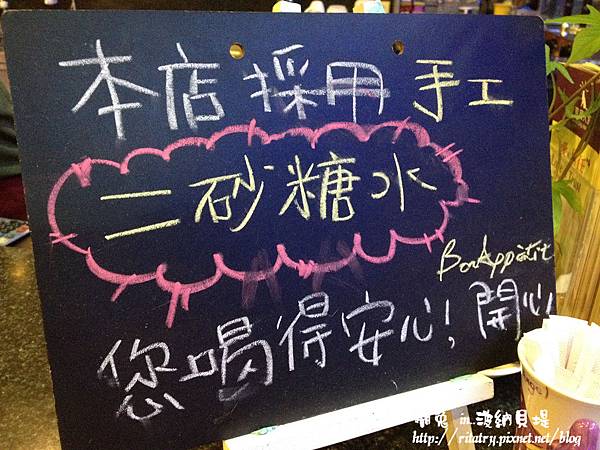 本店採用手工
二砂糖水
Bon Appétit
您喝得安心!開心!
啊兔 in..波納貝提
http://ritatry.pixnet.net/blog